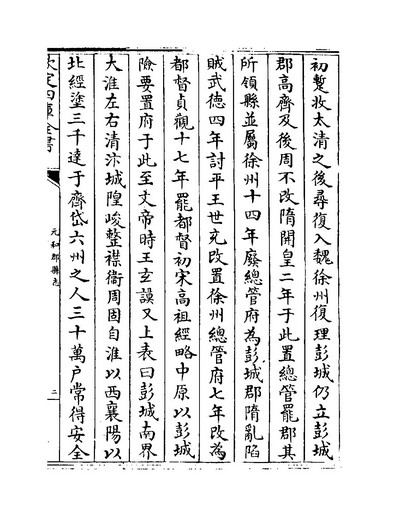 初蹔收太清之後尋復入魏徐州復理彭城仍立彭城
郡高齊及後周不改隋開皇二年于此置總管罷郡其
所領縣並屬徐州十四年廢總管府為彭城郡隋亂陷
賊武德四年討平王世充改置徐州總管府七年改為
都督貞觀十七年罷都督初宋高祖經略中原以彭城
險要置府于此至文帝時王玄謨又上表曰彭城南界
大淮左右清汴城隍峻整襟衛周固自淮以西襄陽以
北經塗三千達于齊岱六州之人三十萬户常得安全
欽定四庫全書
元和郡縣志
二